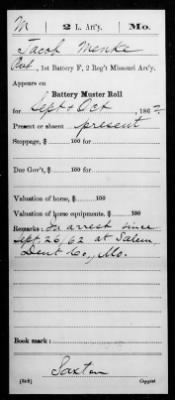 M | 2 L. Art'y. | Mo.
Jacob Menke
Pvt., 1st Battery F, 2 Reg't Missouri Art'y.
Appears on
Battery Muster Roll
for Sept & Oct, 1862
Present or absent present
Stoppage, $ 100 for
Due Gov't, $ 100 for
Valuation of horse, $ 100
Valuation of horse equipments, $ 100
Remarks: In arrest since
Sept. 26/62 at Salem,
Dent Co., Mo.
Book mark:
Saxton
Copyist